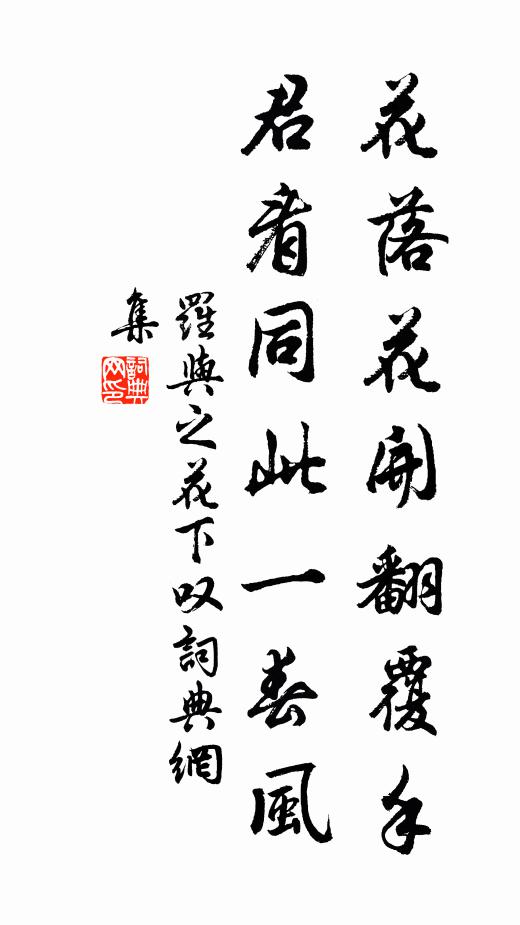 花落花開翻覆手
君看同此一春風
羅與之花下叹詞典網
集
詞典网印